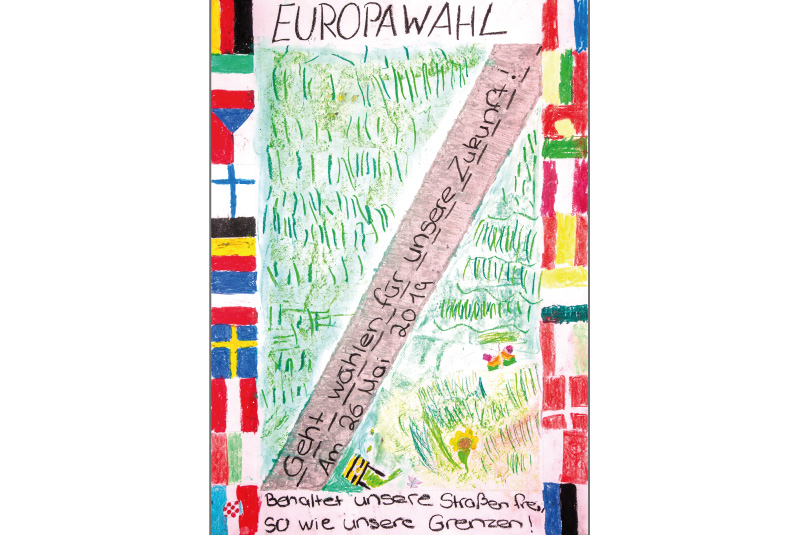 EUROPAWAHL
Geht wählen für unsere Zukunft!
Am 26 Mai 2019
Behaltet unsere Straßen frei,
so wie unsere Grenzen!